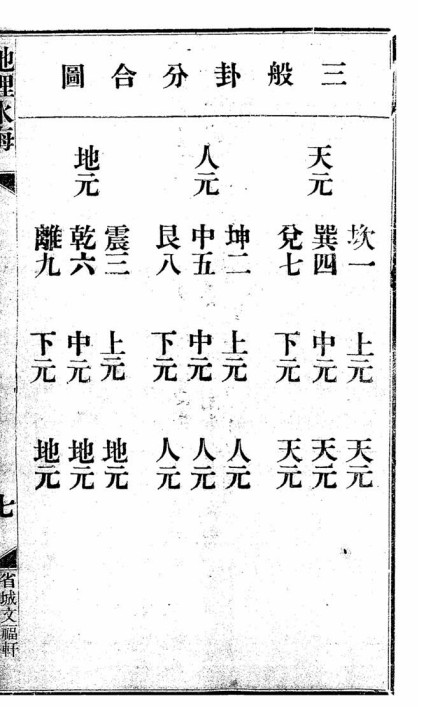 三般卦分合圖
天元
坎一 上元 天元
巽四 中元 天元
兌七 下元 天元
人元
坤二 上元 人元
中五 中元 人元
艮八 下元 人元
地元
震三 上元 地元
乾六 中元 地元
離九 下元 地元
地理水海
七
省城文福軒